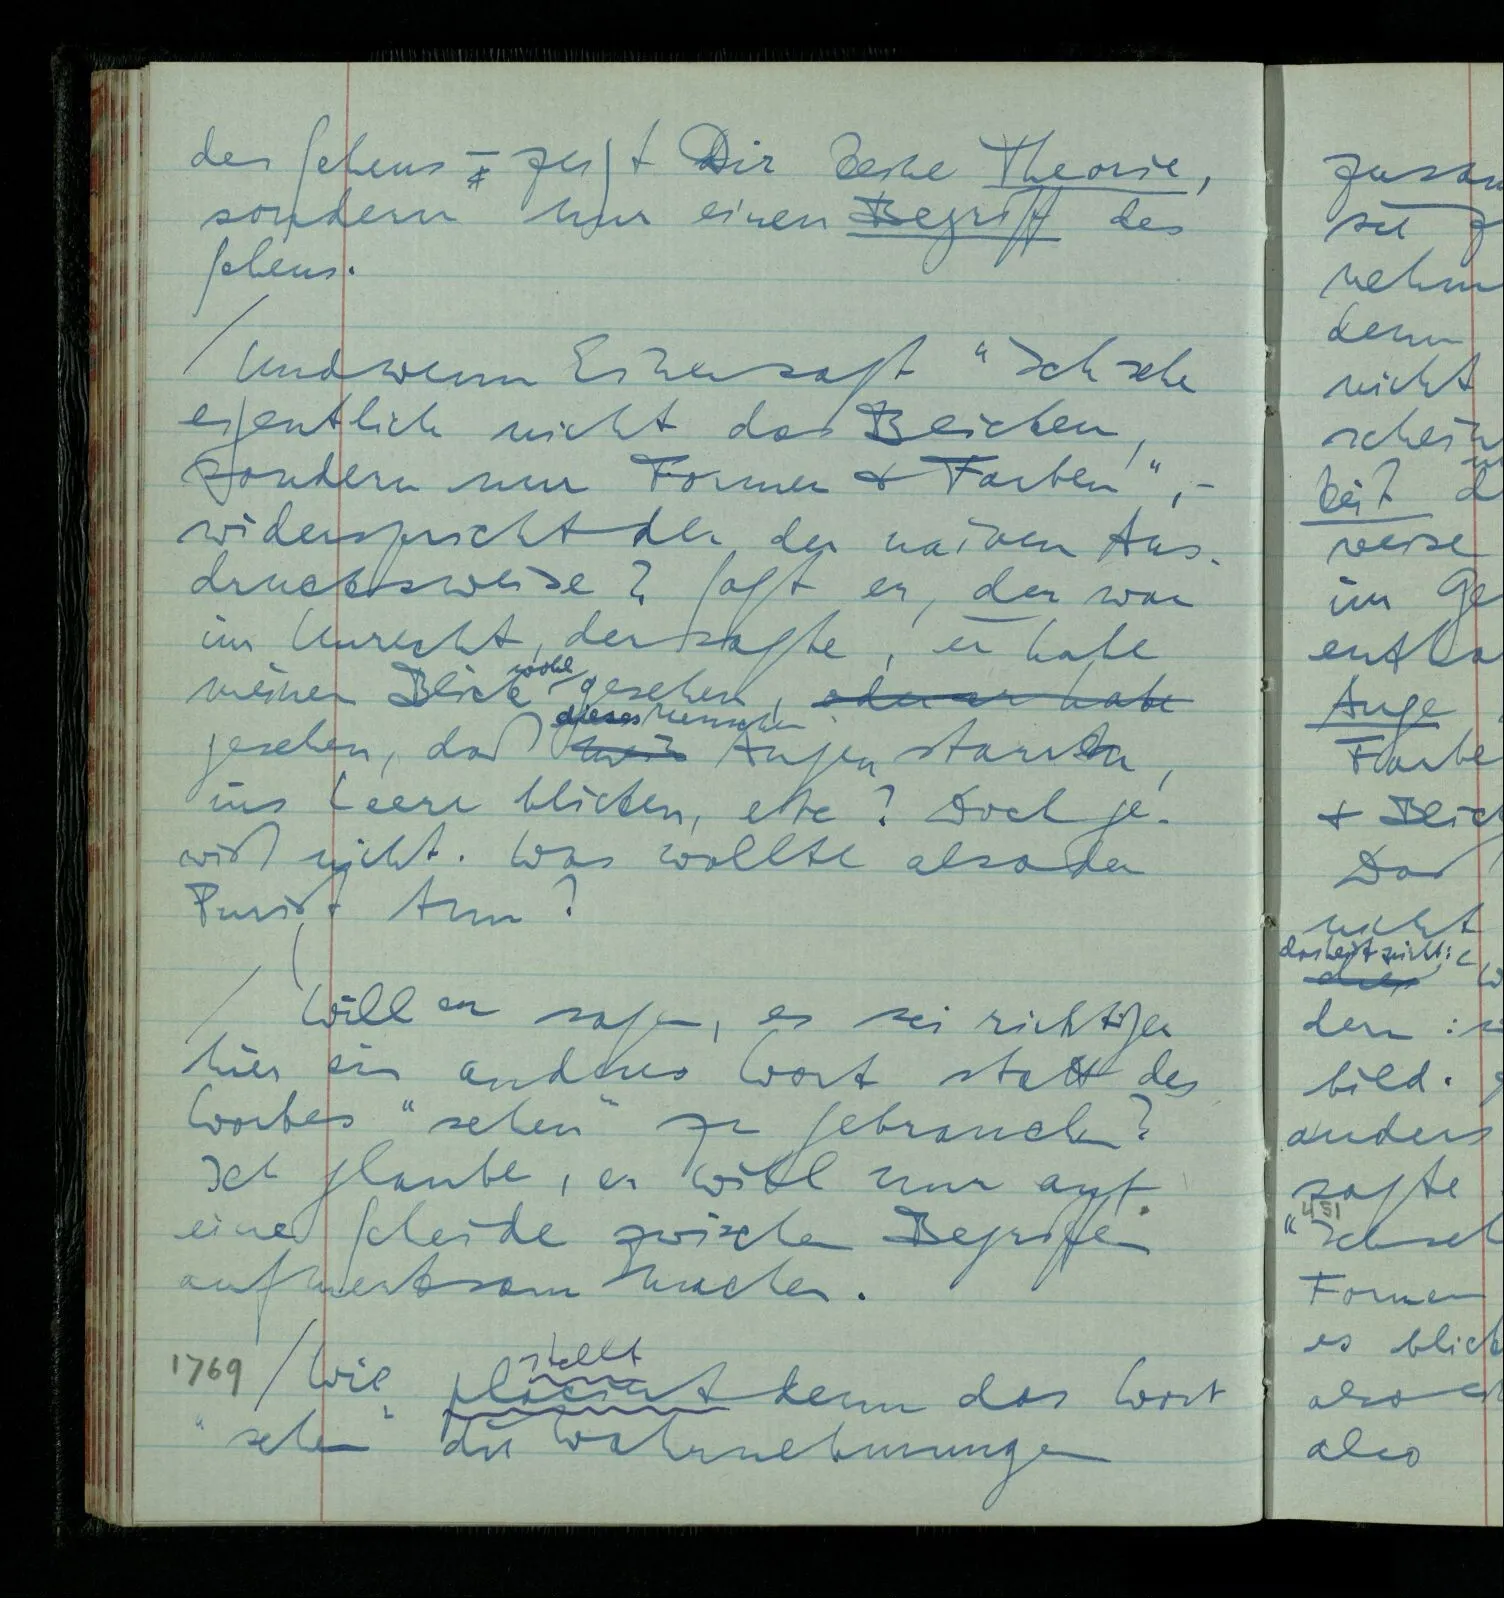 des Sehens – zeigt Dir keine Theorie,
sondern nur einen Begriff des
Sehens.
/ Und wenn Einer sagt “Ich sehe
eigentlich nicht das Blicken,
sondern nur Formen & Farben”, –
widerspricht der der naiven Aus-
drucksweise? Sagt er, der war
im Unrecht, der sagte, er habe
meinen Blick wohl gesehen, oder er habe
gesehen, daß dieses Menschen Augen starren,
ins Leere blicken, etc? Doch ge-
wiß nicht. Was wollte also der
Purist tun?
/ Will er sagen, es sei richtiger
hier ein andres Wort statt des
Wortes “sehen” zu gebrauchen?
Ich glaube, er will nur auf
eine Scheide zwischen Begriffen
aufmerksam machen.
stellt
1769 / Wie placiert denn das Wort
“sehen” die Wahrnehmungen
zusam
sie z
nehm
denn
nicht
schein
keit
weise
im Ge
entha
Auge
Farbe
& Blick
Daß
nicht
das heißt nicht:
dern :
bild.
anders
sagte
451
“Ich seh
Formen
es blick
also
also